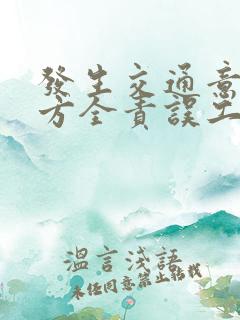 發生交通意
方全責誤工
溫言淺語
未經同意禁止轉載